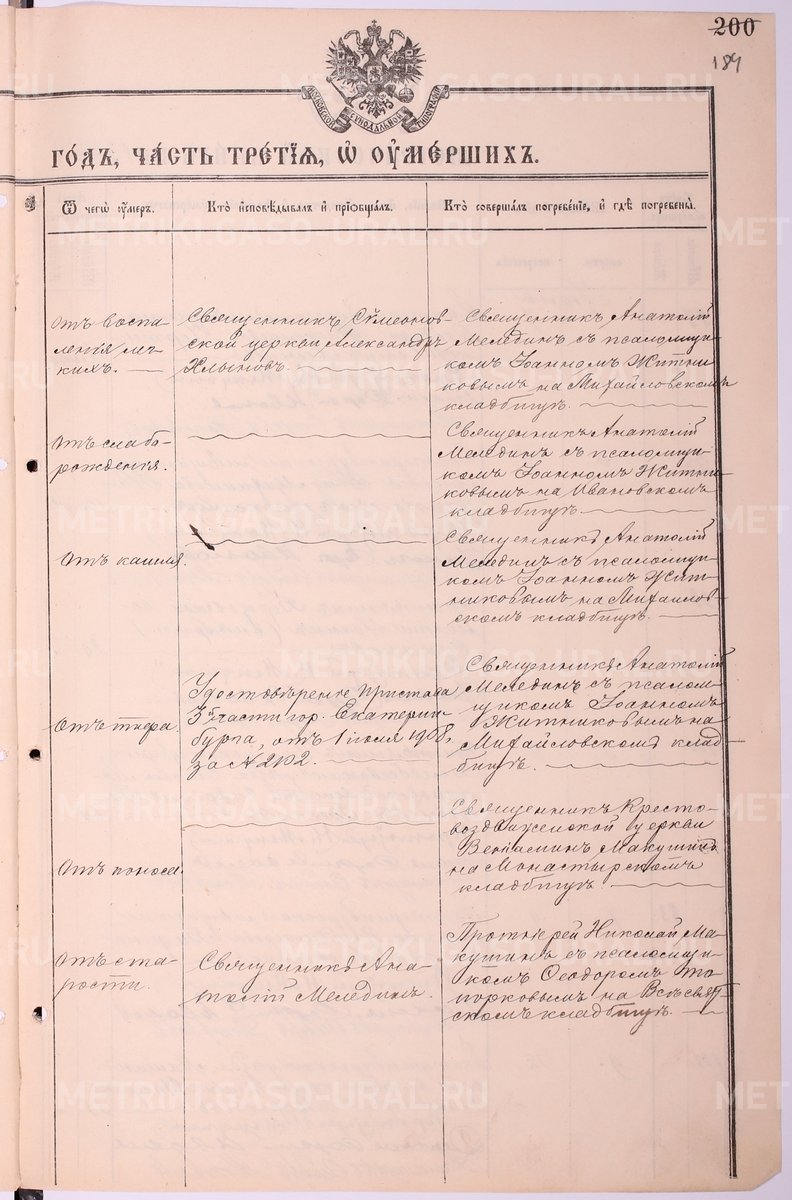 200
184
МОСКОВСКОЙ СѴНОДАЛЬНОЙ ТИПОГРАФІИ
го́дъ, ча́сть тре́тїѧ, ѡ҆ ᲂу҆ме́ршихъ.
Ѿ чегѡ̀ ᲂу҆́меръ.
Кто̀ и҆сповѣ́дывалъ и҆ прїѡбща́лъ.
Кто̀ соверша́лъ погребе́нїе, и҆ гдѣ̀ погребены̀.
Отъ воспа-
ленія лег-
кихъ.
Священникъ Сѵмеонов-
ской церкви Александръ
Хлыновъ.
Священникъ Анатолій
Мелединъ съ псаломщи-
комъ Іоанномъ Житни-
ковымъ на Михайловскомъ
кладбищѣ.
Отъ слабо-
рожденія.
Священникъ Анатолій
Мелединъ съ псаломщи-
комъ Іоанномъ Житни-
ковымъ на Ивановскомъ
кладбищѣ.
Отъ кашля.
Священникъ Анатолій
Мелединъ съ псаломщи-
комъ Іоанномъ Жит-
никовымъ на Михайлов-
скомъ кладбищѣ.
Отъ тифа.
Удостовѣреніе Пристава
3й части гор. Екатерин-
бурга, отъ 1 іюля 1908 г.
за № 2102.
Священникъ Анатолій
Мелединъ съ псалом-
щикомъ Іоанномъ
Житниковымъ на
Михайловскомъ клад-
бищѣ.
Отъ поноса.
Священникъ Кресто-
воздвиженской церкви
Веніаминъ Макушинъ
на Монастырскомъ
кладбищѣ.
Отъ ста-
рости.
Священникъ Ана-
толій Мелединъ.
Протоіерей Николай Ма-
кушинъ съ псаломщи-
комъ Ѳеодоромъ То-
порковымъ на Всѣсвят-
скомъ кладбищѣ.
METRIKI.GASO-URAL.RU